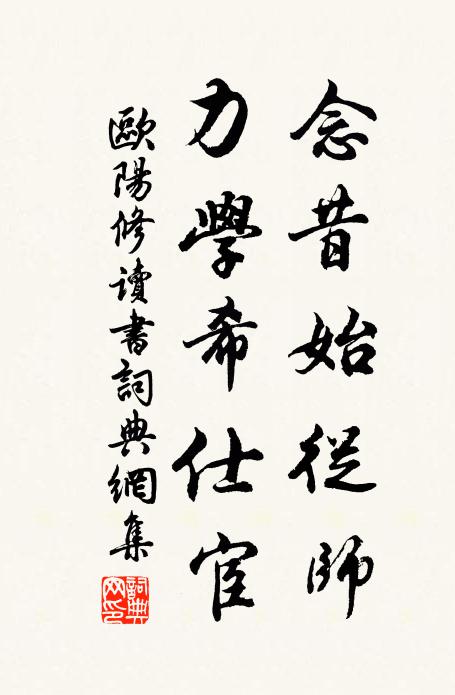 念昔始從師
力學希仕宦
歐陽修讀書詞典網集
詞典网印